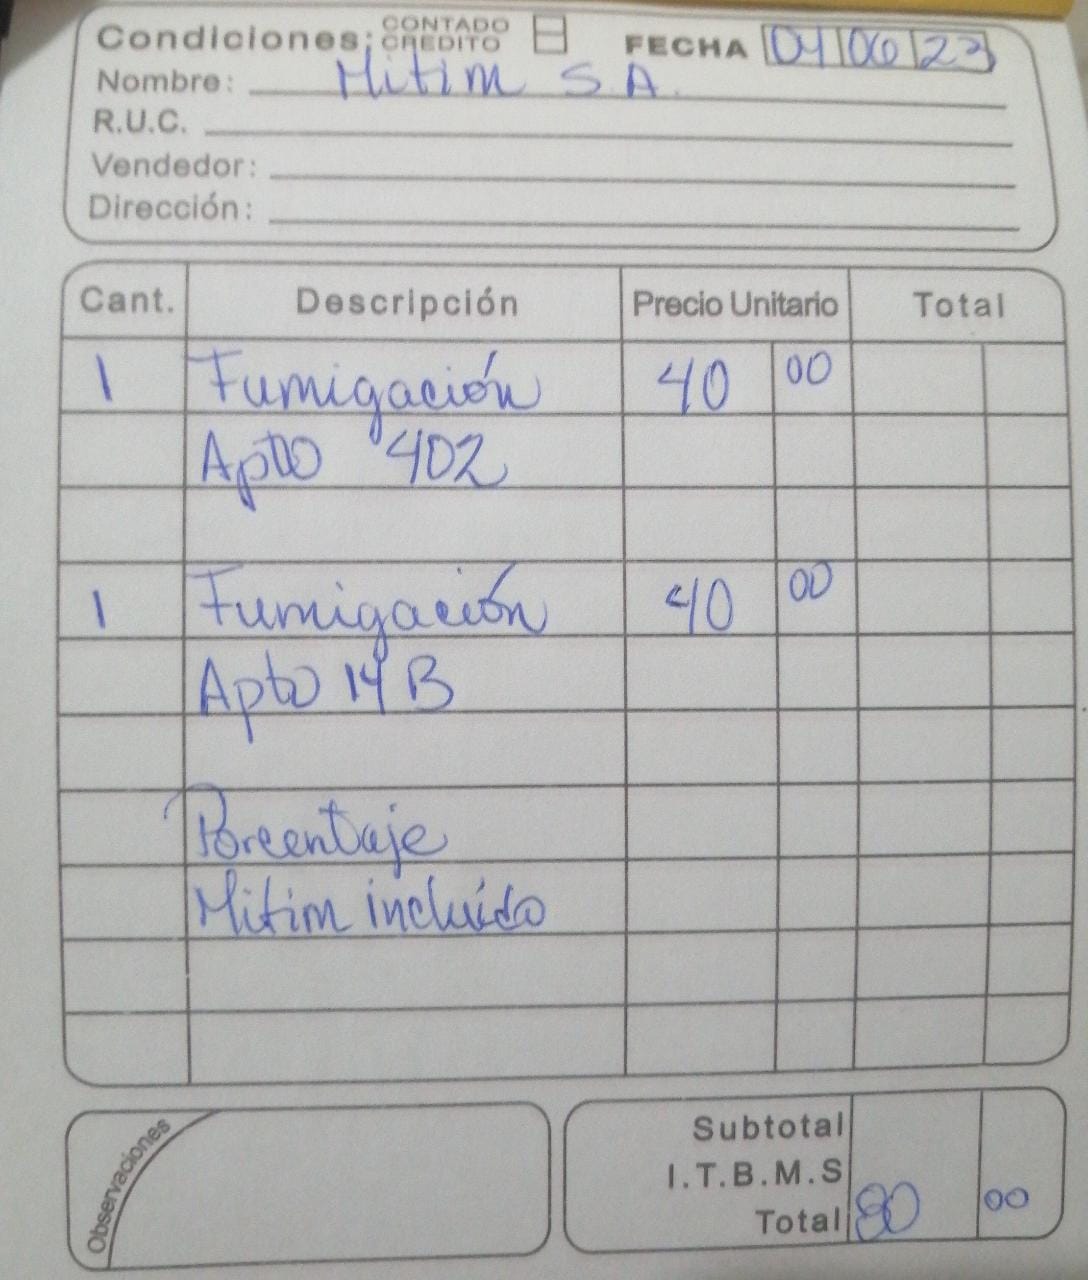 Condiciones: CONTADO
CREDITO
FECHA 04 06 23
Nombre: Mitim S.A.
R.U.C.
Vendedor:
Dirección:
Cant. Descripción Precio Unitario Total
1 Fumigación 40 00
Apto 402
1 Fumigación 40 00
Apto 14 B
Porcentaje
Mitim incluído
Observaciones
Subtotal
I.T.B.M.S
Total 80 00